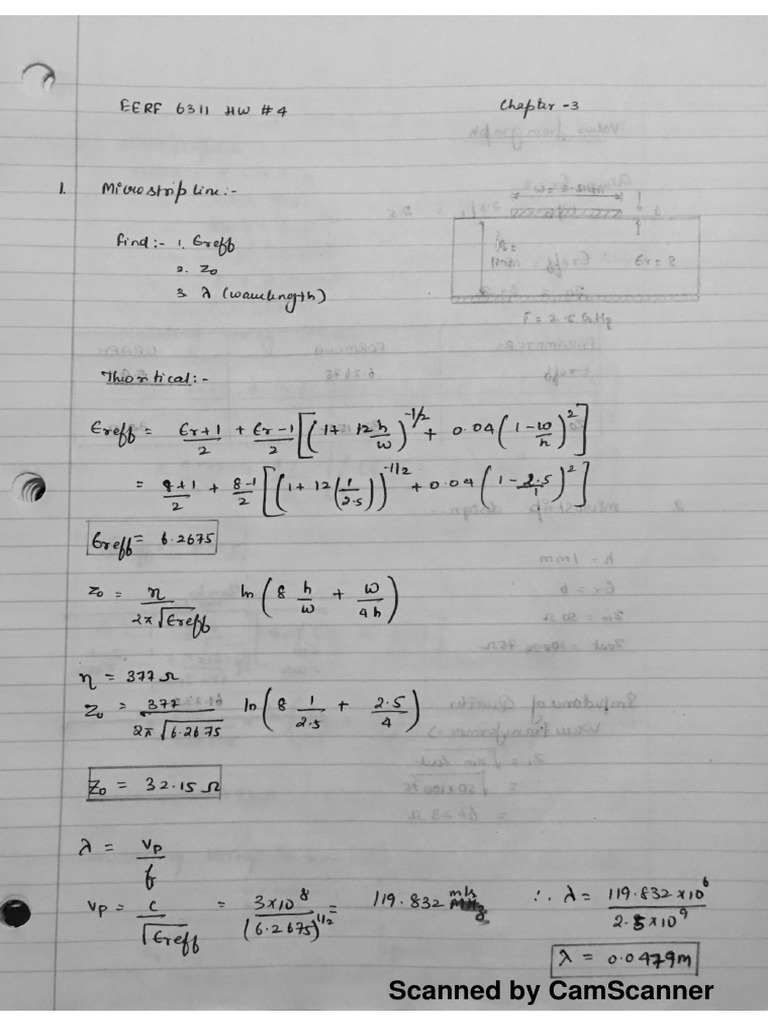 EERF 6311 HW #4
Chapter -3
1. Microstrip line:-
Find:- 1. Ereff
2. Zo
3. λ (wavelength)
Er = 8
F = 2.5 GHz
Theoritical:-
Ereff = Er+1/2 + Er-1/2 [(1+ 12 h/w)^-1/2 + 0.04 (1-w/h)^2]
= 8+1/2 + 8-1/2 [(1+12(1/2.5))^-1/2 + 0.04 (1-2.5/1)^2]
Ereff = 6.2675
Zo = η/2π√Ereff ln (8 h/w + w/4h)
η = 377Ω
Zo = 377/2π√6.2675 ln (8 1/2.5 + 2.5/4)
Zo = 32.15 Ω
λ = Vp/f
Vp = c/√Ereff = 3×10^8/(6.2675)^1/2 = 119.832 m/s ∴ λ = 119.832×10^6/2.5×10^9
λ = 0.0479m
Scanned by CamScanner